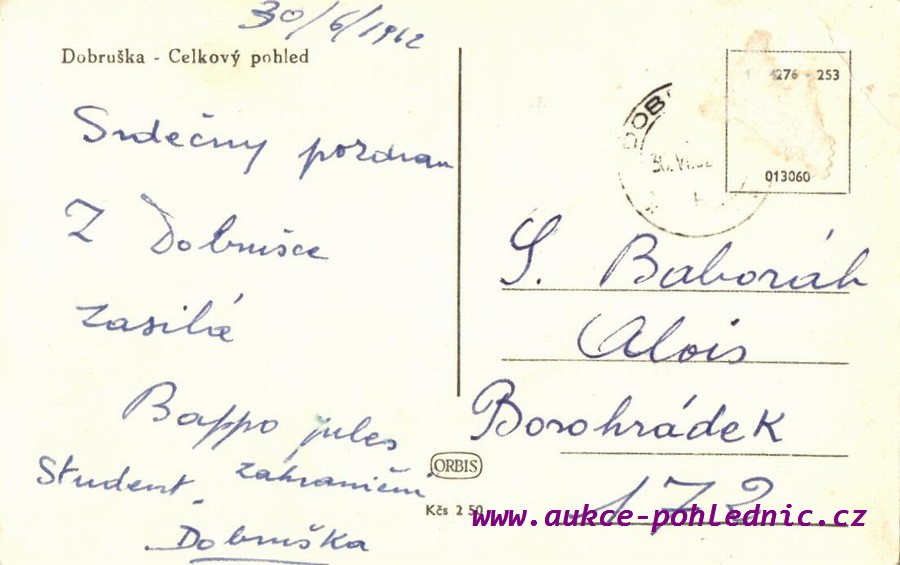 30/6/1962
Dobruška - Celkový pohled
Srdečny pozdrav
Z Dobrušce
zasilá
Bappo jules
Student zahraniční
Dobruška
ORBIS
Kčs 2 50
DOB
30.VI.62
4276 - 253
013060
S. Baborák
Alois
Borohrádek
172
www.aukce-pohlednic.cz